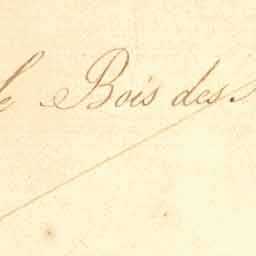 le Bois des